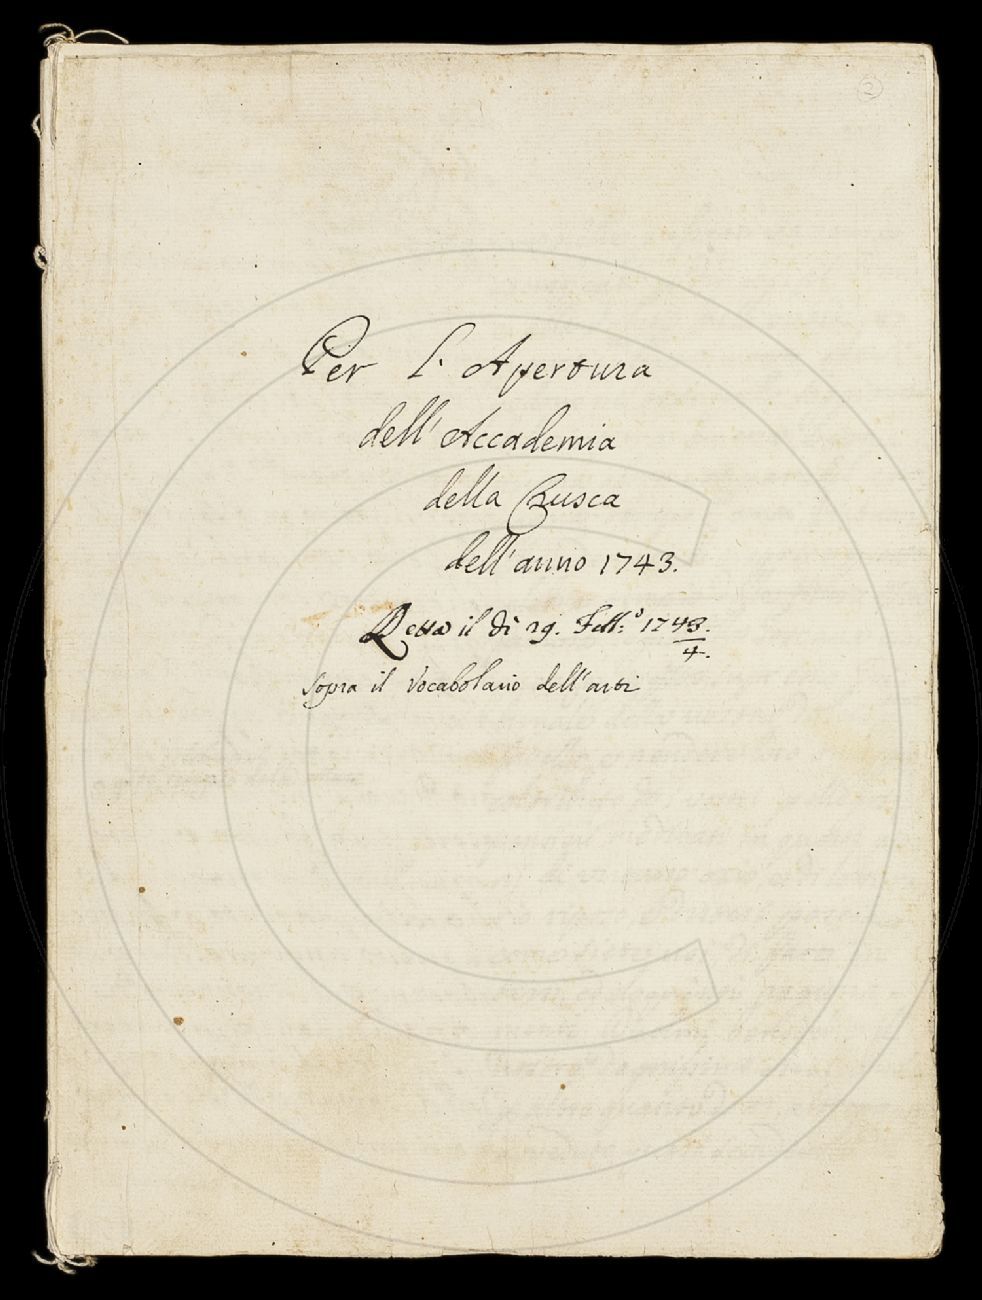 2
Per l'Apertura
dell'Accademia
della Crusca
dell'anno 1743.
Letta il dì 29. Febb.º 1743.
4.
Sopra il Vocabolario dell'arti